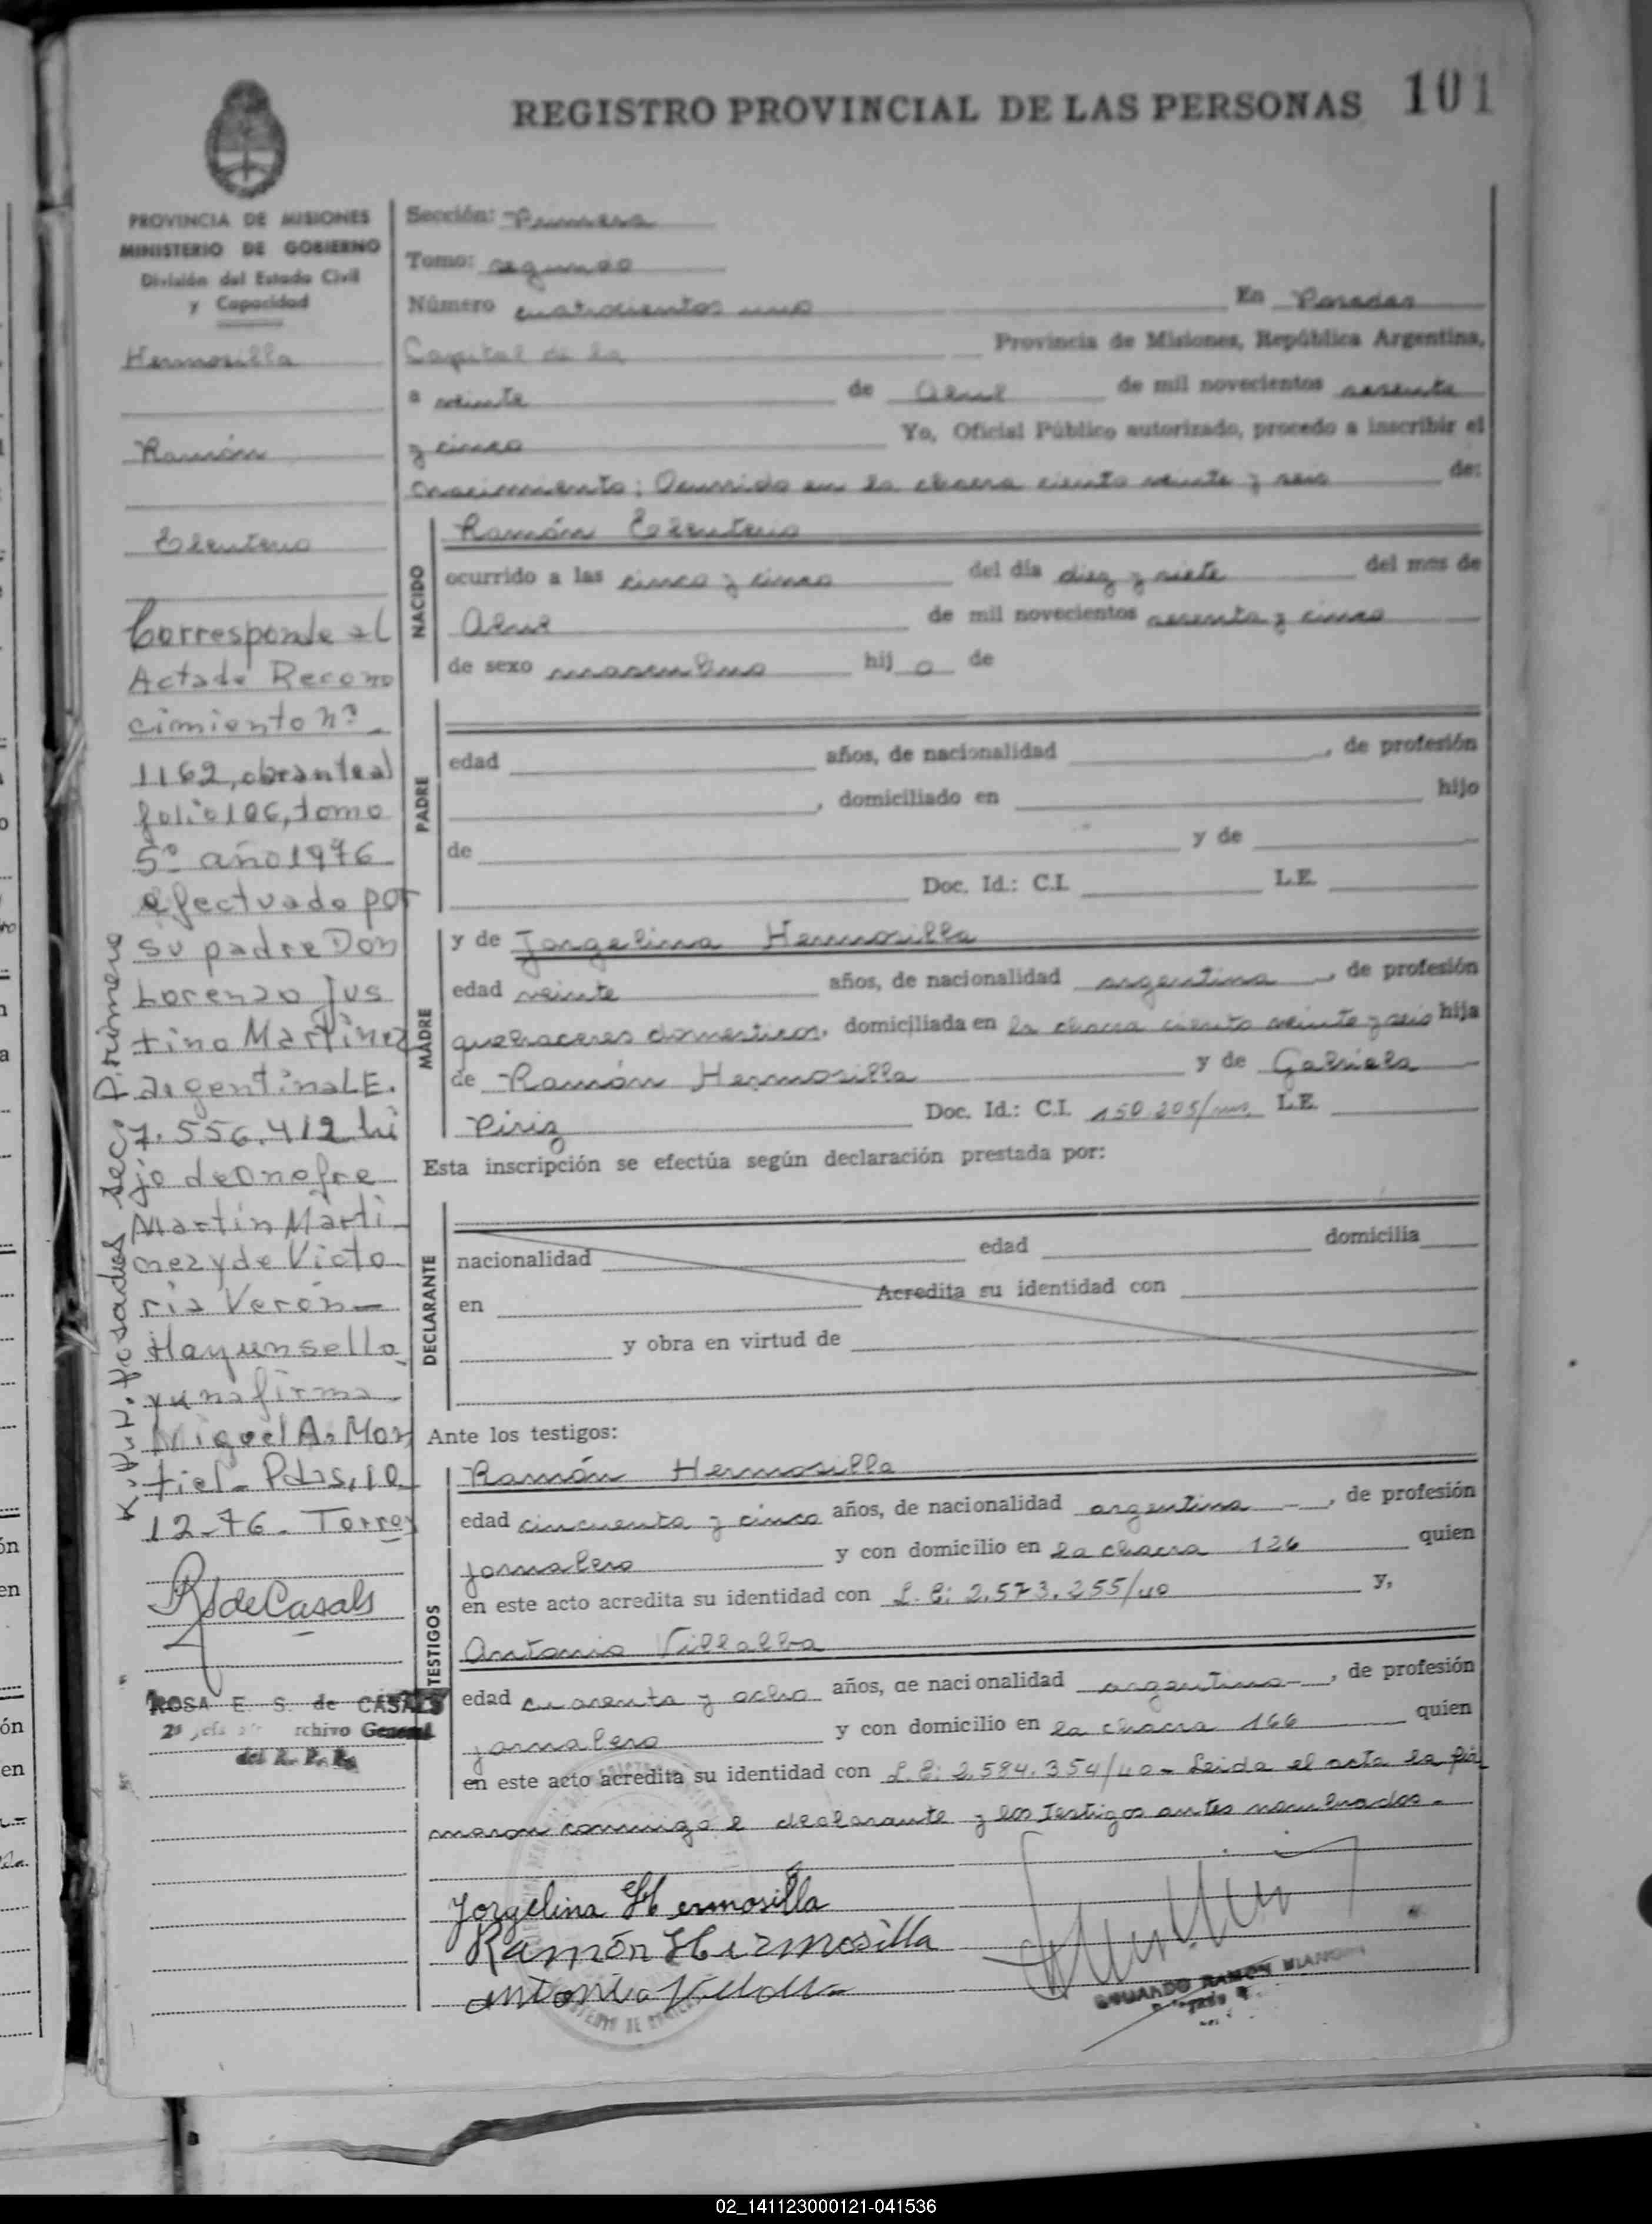 REGISTRO PROVINCIAL DE LAS PERSONAS 101
PROVINCIA DE MISIONES
MINISTERIO DE GOBIERNO
División del Estado Civil
y Capacidad
Hermosilla
Ramón
Eleuterio
Corresponde al
Acta de Recono
cimiento nº
1162, obrante al
folio 106, tomo
5º año 1976
efectuado por
su padre Don
Lorenzo Jus
tino Martinez
argentina L.E.
7.556.412 hi
jo de Onofre
Martin Marti
nez y de Victo
ria Verón
Hay un sello
y una firma
Miguel A. Mon
tiel - Pdas, 10
12-76- Torres
RSdeCasals
ROSA E. S. de CASALS
Archivo General
del R. P. P.
Posadas Sec: Primero
Sección: Primera
Tomo: segundo
Número cuatrocientos uno En Posadas
Capital de la Provincia de Misiones, República Argentina,
a veinte de Abril de mil novecientos sesenta
y cinco Yo, Oficial Público autorizado, procedo a inscribir el
nacimiento; Ocurrido en la chacra ciento veinte y seis de:
NACIDO
Ramón Eleuterio
ocurrido a las cinco y cinco del día diez y siete del mes de
Abril de mil novecientos sesenta y cinco
de sexo masculino hij o de
PADRE
edad años, de nacionalidad , de profesión
, domiciliado en hijo
de y de
Doc. Id.: C.I. L.E.
MADRE
y de Jorgelina Hermosilla
edad veinte años, de nacionalidad argentina , de profesión
quehaceres domesticos, domiciliada en la chacra ciento veinte y seis hija
de Ramón Hermosilla y de Gabriela
Piriz Doc. Id.: C.I. 150.205/mns. L.E.
Esta inscripción se efectúa según declaración prestada por:
DECLARANTE
nacionalidad edad domicilia
en Acredita su identidad con
y obra en virtud de
Ante los testigos:
TESTIGOS
Ramón Hermosilla
edad cincuenta y cinco años, de nacionalidad argentina , de profesión
jornalero y con domicilio en la chacra 126 quien
en este acto acredita su identidad con L.E: 2.573.255/40 y,
Antonio Villalba
edad cuarenta y ocho años, de nacionalidad argentina , de profesión
jornalero y con domicilio en la chacra 166 quien
en este acto acredita su identidad con L.E: 2.584.354/40 - Leida el acta la fir
maron conmigo e declarante y los Testigos antes nombrados.-
Jorgelina Hermosilla
Ramón Hermosilla
Antonio Villalba
EDUARDO RAMON
02_141123000121-041536